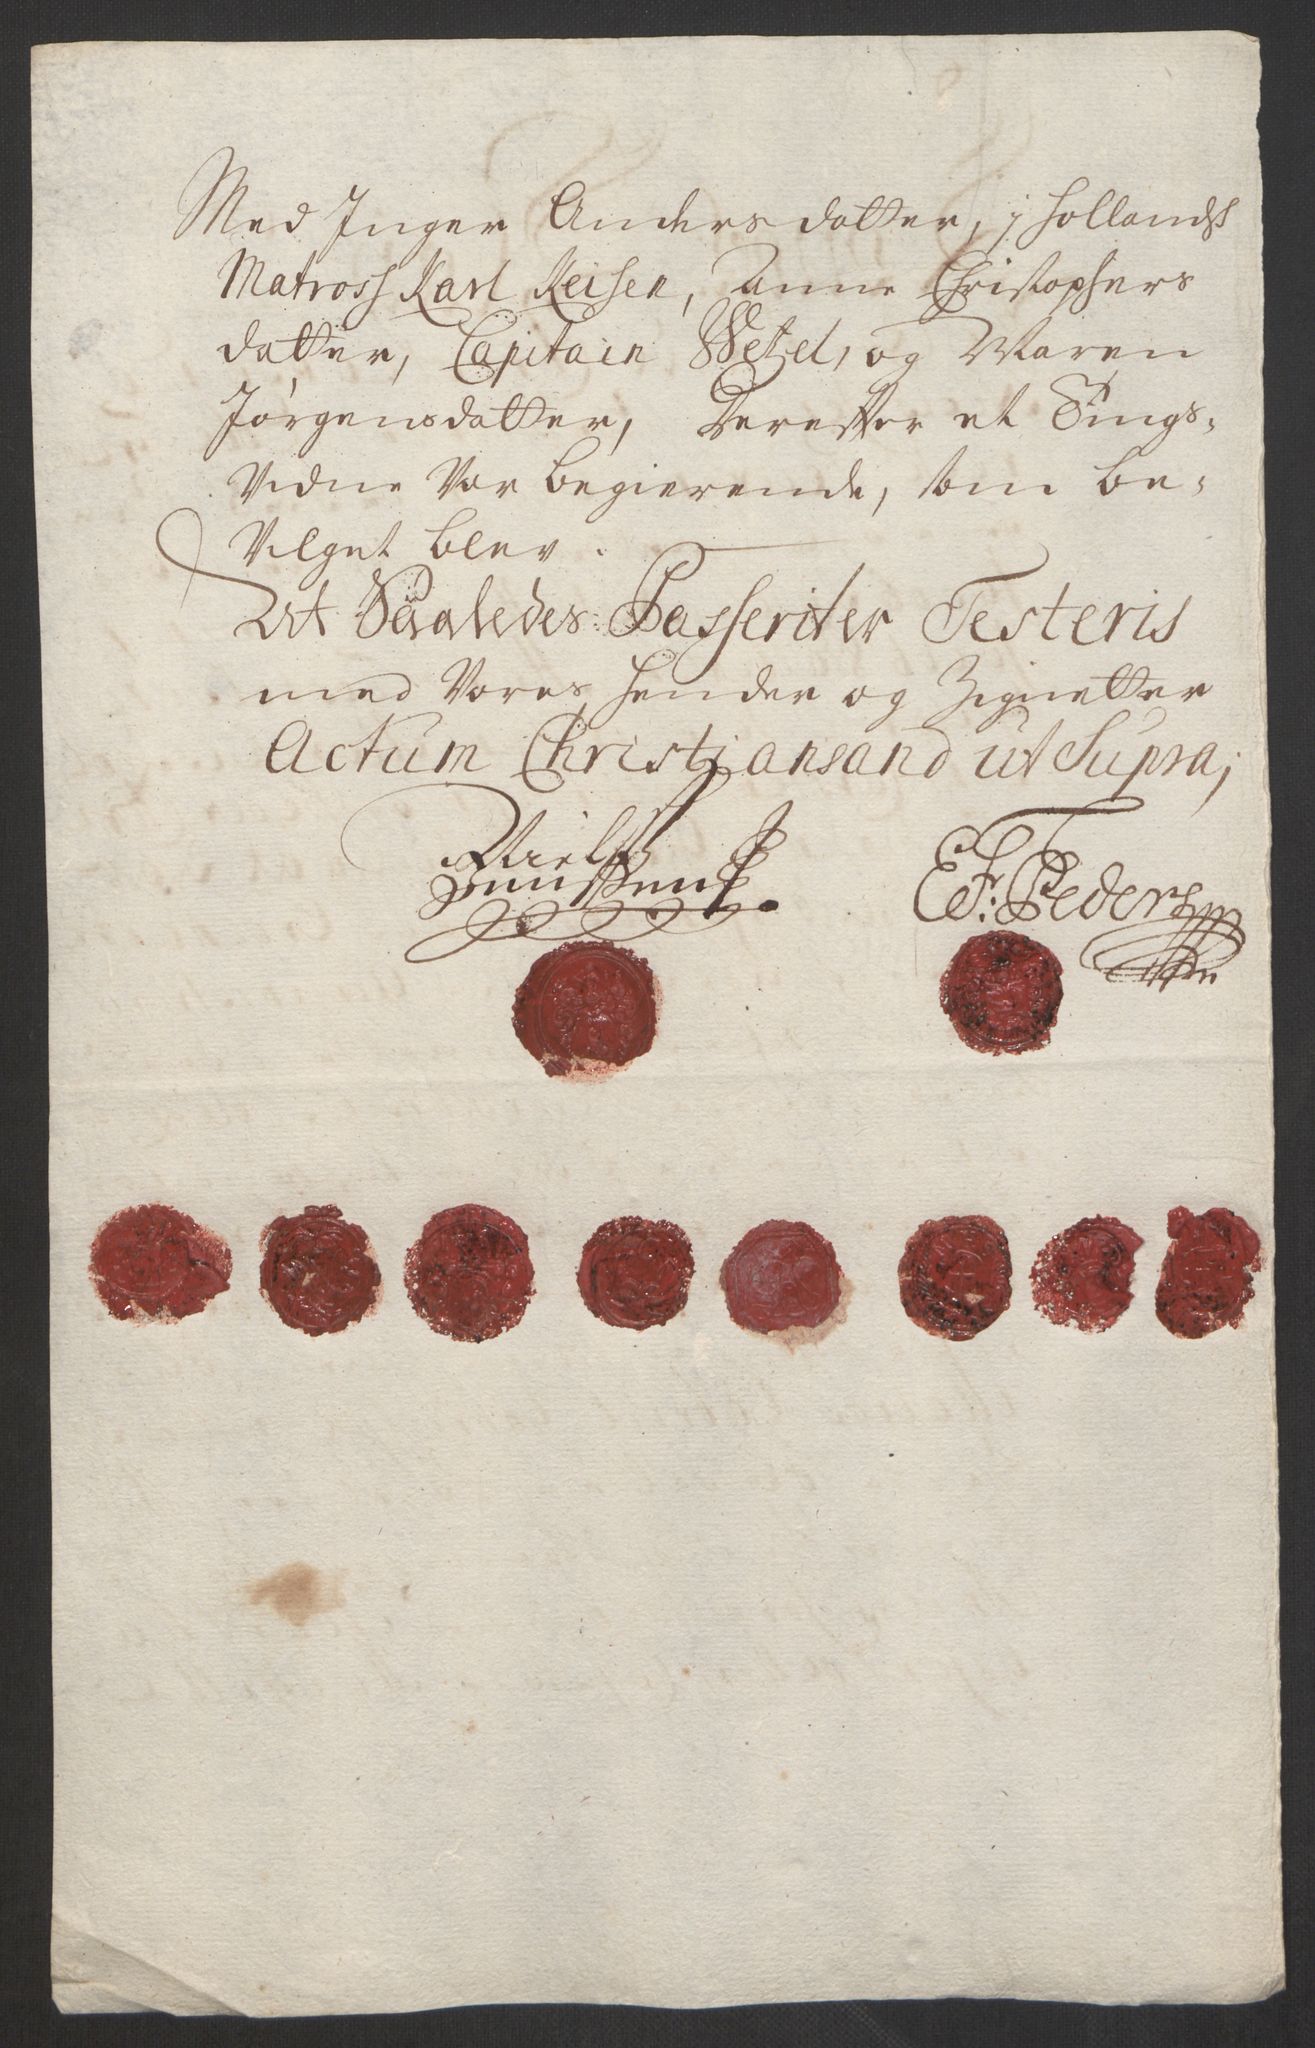 Med Inger Andersdatter, j hollandsk
Matross Karl Reisen, Anne Christophers
datter, Capitain Wetzel, og Maren
Jørgensdatter, Derefter et Tings-
Vidne Var begierende, som be-
Vilget blev.
At Saaledes Passeritet Testeris
med Vores hender og Zignetter
Actum Christiansand ut Supra;
Nielss
E. F: Pedersen